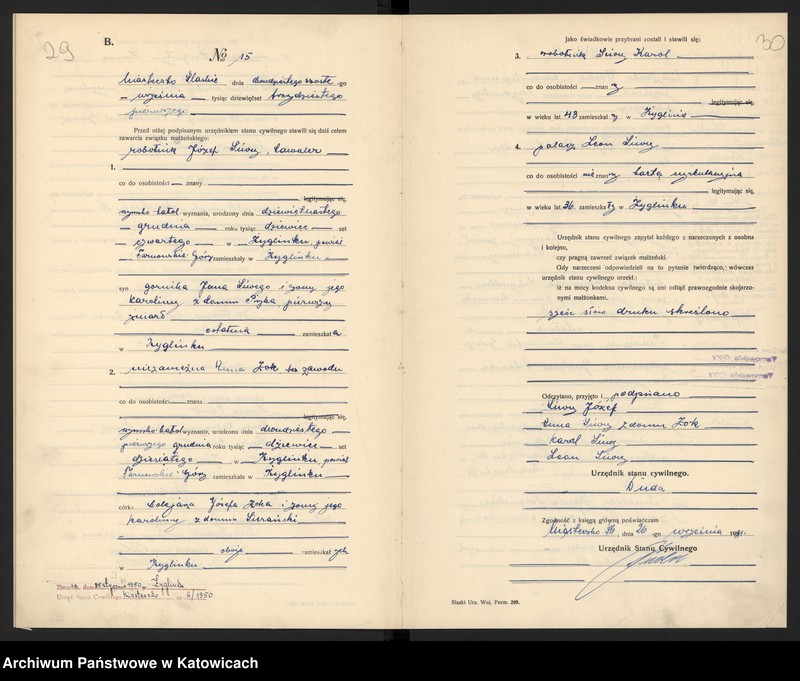 29
B.
No 15
Miasteczko Śląskie, dnia dwudziestego szóstego
września tysiąc dziewięćset trzydziestego
pierwszego
Przed niżej podpisanym urzędnikiem stanu cywilnego stawili się dziś celem
zawarcia związku małżeńskiego:
robotnik Józef Siwy, kawaler
1.
co do osobistości znany
legitymując się,
rzymsko-katol. wyznania, urodzony dnia dziewiętnastego
grudnia roku tysiąc dziewięć set
czwartego w Żyglinku, powiat
Tarnowskie Góry zamieszkały w Żyglinku
syn górnika Jana Siwego i żony jego
Karoliny z domu pierwszy
zmarł
ostatnia zamieszkała
w Żyglinku
2. niezamężna Anna Żok bez zawodu
co do osobistości znana
legitymując się,
rzymsko-katol wyznania, urodzona dnia dwudziestego
pierwszego grudnia roku tysiąc dziewięć set
dziesiątego w Żyglinku, powiat
Tarnowskie Góry zamieszkała w Żyglinku
córka Józefa Żoka i żony jego
Karoliny z domu
oboje zamieszkałych
w Żyglinku
Zmarła dnia stycznia 1950 w Żyglinku
Urząd Stanu Cywilnego nr 6/1950
30
Jako świadkowie przybrani zostali i stawili się:
3. robotnik Siwy Karol
co do osobistości znany
legitymując się,
w wieku lat 43 zamieszkały w Żyglinie
4. palacz Leon Siwy
co do osobistości nieznany kartą cyrkulacyjną
legitymując się,
w wieku lat 36 zamieszkały w Żyglinku
Urzędnik stanu cywilnego zapytał każdego z narzeczonych z osobna
i kolejno,
czy pragną zawrzeć związek małżeński.
Gdy narzeczeni odpowiedzieli na to pytanie twierdząco, wówczas
urzędnik stanu cywilnego orzekł:
iż na mocy kodeksu cywilnego są oni odtąd prawozgodnie skojarzo-
nymi małżonkami.
sześć słów druku skreślono
Odczytano, przyjęto i podpisano
Siwy Józef
Anna Siwy z domu Żok
Karol Siwy
Leon Siwy
Urzędnik stanu cywilnego.
Duda
Zgodność z księgą główną poświadczam
Miasteczko Śl., dnia 26 -go września 1931.
Urzędnik Stanu Cywilnego
Duda
Śląski Urz. Woj. Form. 209.
Archiwum Państwowe w Katowicach